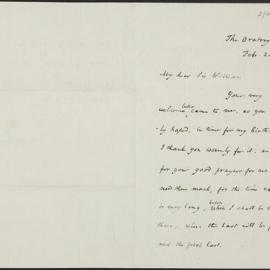 The Oratory
Feb. 2
My dear Sir William
Your very
welcome letter came to me, as you
-ly hoped, in time for my birth
I thank you warmly for it, an
for your good prayers for me
need them much, for the time
is very long, before I shall be
there, where the last will be
and the first last.